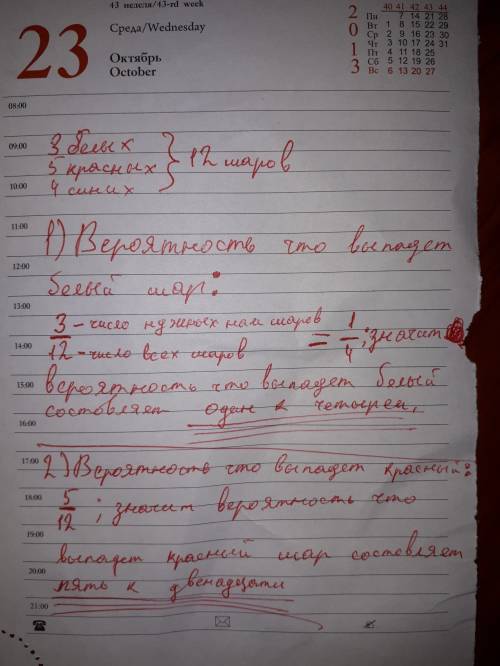 43 неделя/43-rd week
23
Среда/Wednesday
Октябрь
October
2013
40 41 42 43 44
Пн 7 14 21 28
Вт 1 8 15 22 29
Ср 2 9 16 23 30
Чт 3 10 17 24 31
Пт 4 11 18 25
Сб 5 12 19 26
Вс 6 13 20 27
08:00
09:00 3 белых
5 красных } 12 шаров
10:00 4 синих
11:00
1) Вероятность что выпадет
12:00
белый шар:
13:00
3 - число нужных нам шаров
14:00 12 - число всех шаров = 1/4; значит
15:00 вероятность что выпадет белый
составляет один к четырем.
16:00
17:00 2) Вероятность что выпадет красный:
18:00 5/12; значит вероятность что
19:00
выпадет красный шар составляет
20:00
пять к двенадцати
21:00